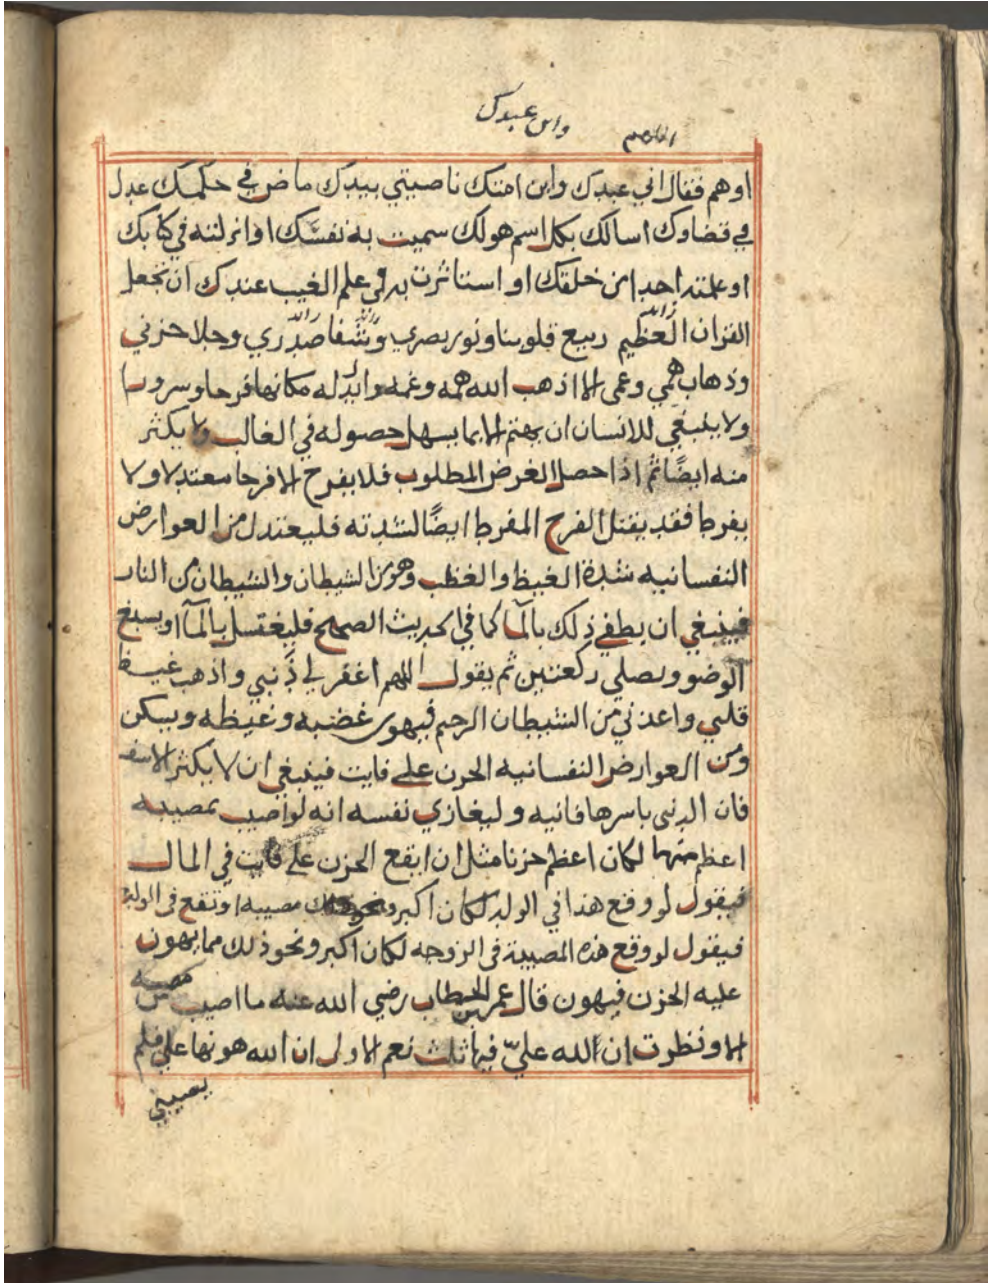 وابن عبدك
اللهم
اوهم فقال اني عبدك وابن امتك ناصيتي بيدك ماض في حكمك عدل
في قضاوك اسالك بكل اسم هولك سميت به نفسك او انزلته في كتابك
او علمته احدا من خلقك او استاثرت به في علم الغيب عندك ان تجعل
القران العظيم ربيع قلوبنا ونور بصري وشفا صدري وجلا حزني
زائد
زائد
زائد
وذهاب همي وغمي الا اذهب الله همه وغمه وابدله مكانها فرحا وسرورا
ولا ينبغي للانسان ان يهتم الا بما يسهل حصوله في الغالب ولا يكثر
منه ايضًا ثم اذا حصل الغرض المطلوب فلا يفرح الا فرحا معتدلا ولا
يفرط فقد يقتل الفرح المفرط ايضًا لشدته فليعتدل من العوارض
النفسانيه شدة الغيظ والغظب وهو من الشيطان والشيطان من النار
فينبغي ان يطفي ذلك بالمآ كما في الحديث الصحيح فليغتسل بالمآ او يسبغ
الوضو ويصلي ركعتين ثم يقول اللهم اغفر لي ذنبي واذهب غيظ
قلبي واعذني من الشيطان الرجيم فيهوى غضبه وغيظه ويسكن
ومن العوارض النفسانيه الحزن على فايت فينبغي ان لا يكثر الاسف
فان الدنى باسرها فانيه وليغازي نفسه انه لو اصيب بمصيبه
اعظم منها لكان اعظم حزنا مثل ان ايقع الحزن على فايت في المال
فيقول لو وقع هذا في الولد لكان اكبر مصيبه او تقع في الولد
فيقول لو وقع هذه المصيبة في الزوجه لكان اكبر ونحو ذلك مما يهون
عليه الحزن فيهون قال عمر بن الخطاب رضي الله عنه ما اصيب من مصيبه
الا ونظرت ان الله عليّ فيها ثلث نعم الاولى ان الله هونها علي فلم
يصيبني